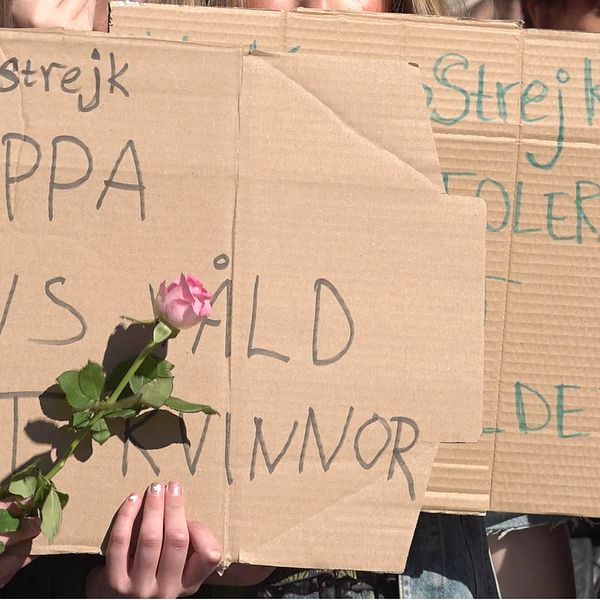 strejk
PPA
VS VÅLD
T KVINNOR
Strejk
TOLER
LDE